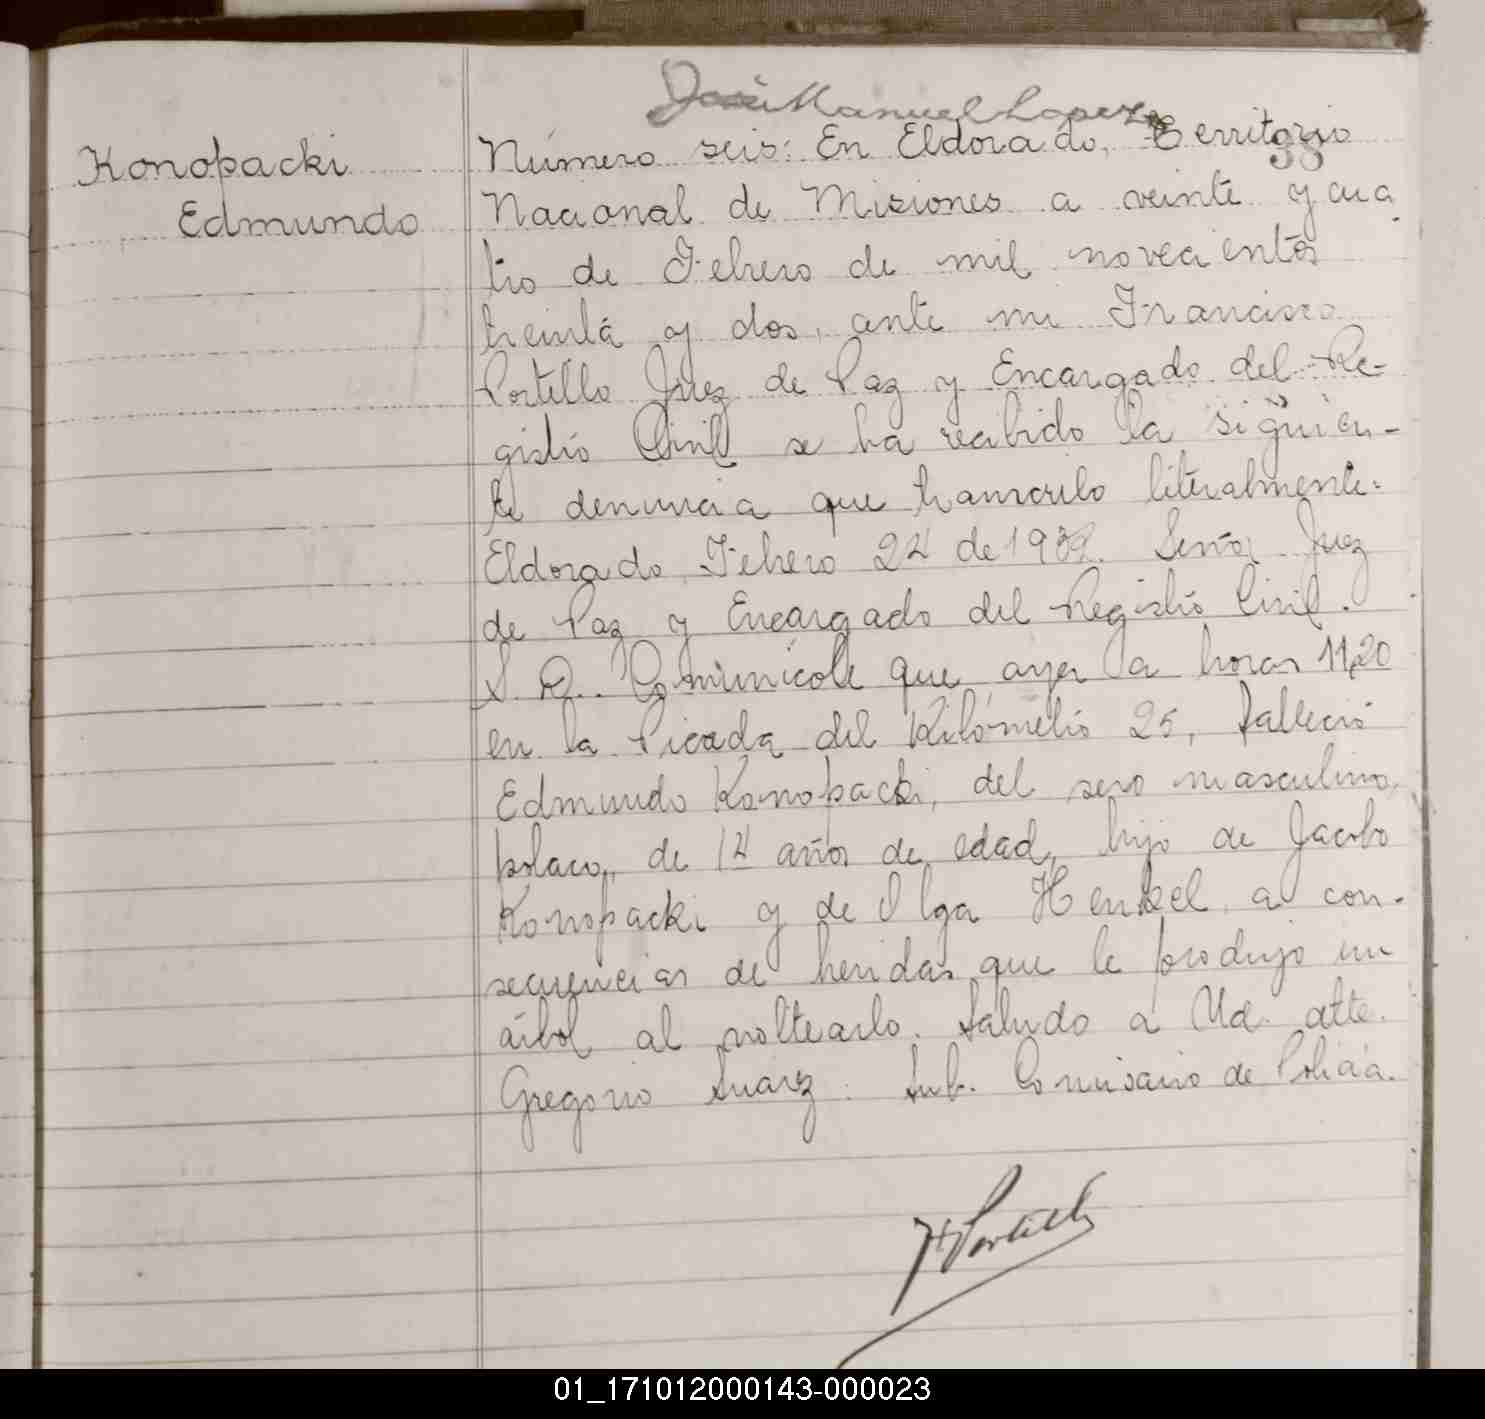 José Manuel Lopez
38
Konopacki
Edmundo
Número seis: En Eldorado, Territorio
Nacional de Misiones a veinte y cua
tro de Febrero de mil novecientos
treinta y dos, ante mi Francisco
Portillo Juez de Paz y Encargado del Re-
gistro Civil se ha recibido la siguien-
te denuncia que transcribo literalmente:
Eldorado Febrero 24 de 1932. Señor Juez
de Paz y Encargado del Registro Civil.
S. D. Comunicole que ayer a horas 11,20
en la Picada del Kilómetro 25, falleció
Edmundo Konopacki, del sexo masculino,
polaco, de 14 años de edad, hijo de Jacobo
Konopacki y de Olga Henkel a con-
secuencias de heridas que le produjo un
árbol al voltearlo. Saludo a Ud. atte.
Gregorio Suarez. Sub. Comisario de Policia.
F Portillo
01_171012000143-000023